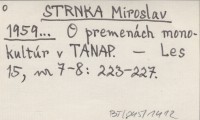 STRNKA Miroslav
1959... O premenách mono-
kultúr v TANAP. — Les
15, nr 7-8: 223-227.